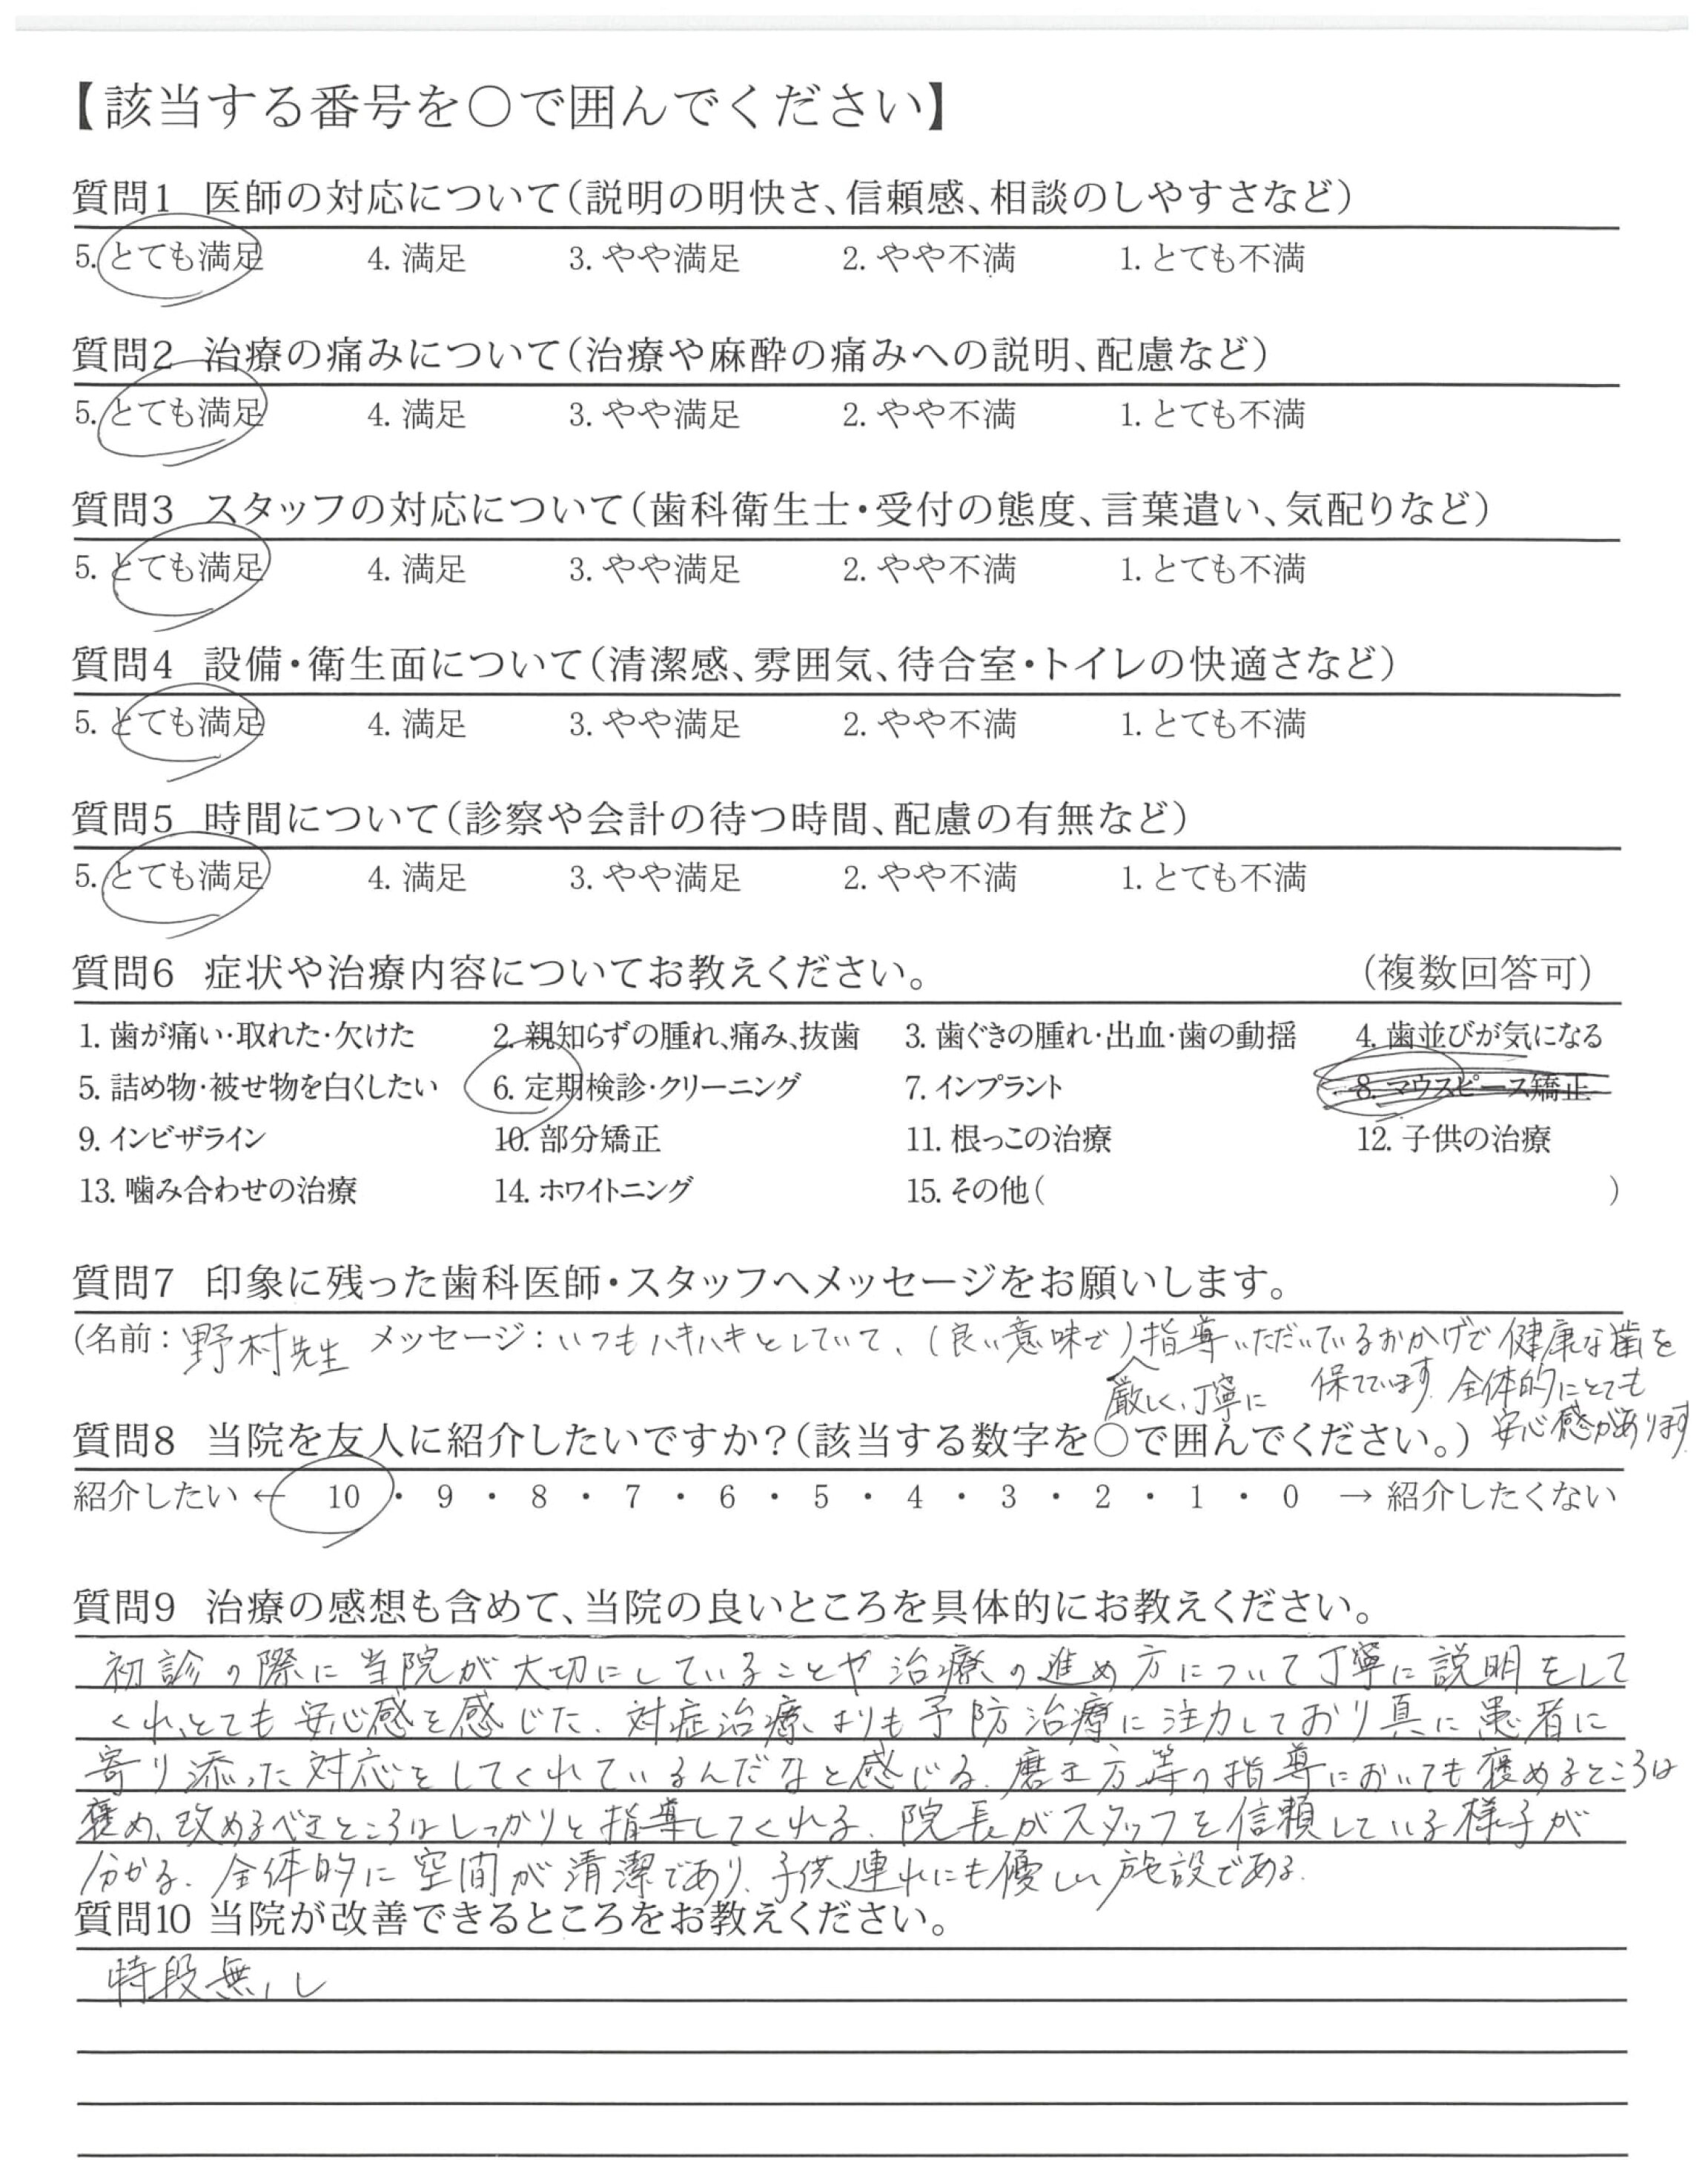 【該当する番号を○で囲んでください】
質問1 医師の対応について(説明の明快さ、信頼感、相談のしやすさなど)
5. とても満足 4. 満足 3. やや満足 2. やや不満 1. とても不満
質問2 治療の痛みについて(治療や麻酔の痛みへの説明、配慮など)
5. とても満足 4. 満足 3. やや満足 2. やや不満 1. とても不満
質問3 スタッフの対応について(歯科衛生士・受付の態度、言葉遣い、気配りなど)
5. とても満足 4. 満足 3. やや満足 2. やや不満 1. とても不満
質問4 設備・衛生面について(清潔感、雰囲気、待合室・トイレの快適さなど)
5. とても満足 4. 満足 3. やや満足 2. やや不満 1. とても不満
質問5 時間について(診察や会計の待つ時間、配慮の有無など)
5. とても満足 4. 満足 3. やや満足 2. やや不満 1. とても不満
質問6 症状や治療内容についてお教えください。 (複数回答可)
1. 歯が痛い・取れた・欠けた 2. 親知らずの腫れ、痛み、抜歯 3. 歯ぐきの腫れ・出血・歯の動揺 4. 歯並びが気になる
5. 詰め物・被せ物を白くしたい 6. 定期検診・クリーニング 7. インプラント 8. マウスピース矯正
9. インビザライン 10. 部分矯正 11. 根っこの治療 12. 子供の治療
13. 噛み合わせの治療 14. ホワイトニング 15. その他( )
質問7 印象に残った歯科医師・スタッフへメッセージをお願いします。
(名前: 野村先生 メッセージ: いつもハキハキとしていて、(良い意味で)指導いただいているおかげで健康な歯を
厳しく、丁寧に 保てています。全体的にとても
安心感があります
質問8 当院を友人に紹介したいですか?(該当する数字を○で囲んでください。)
紹介したい ← 10 ・ 9 ・ 8 ・ 7 ・ 6 ・ 5 ・ 4 ・ 3 ・ 2 ・ 1 ・ 0 → 紹介したくない
質問9 治療の感想も含めて、当院の良いところを具体的にお教えください。
初診の際に当院が大切にしていることや治療の進め方について丁寧に説明をして
くれ、とても安心感を感じた。対症治療よりも予防治療に注力しており真に患者に
寄り添った対応をしてくれているんだなと感じる。磨き方等の指導においても褒めるところは
褒め、改めるべきところはしっかりと指導してくれる。院長がスタッフを信頼している様子が
分かる。全体的に空間が清潔であり、子供連れにも優しい施設である。
質問10 当院が改善できるところをお教えください。
特段無し